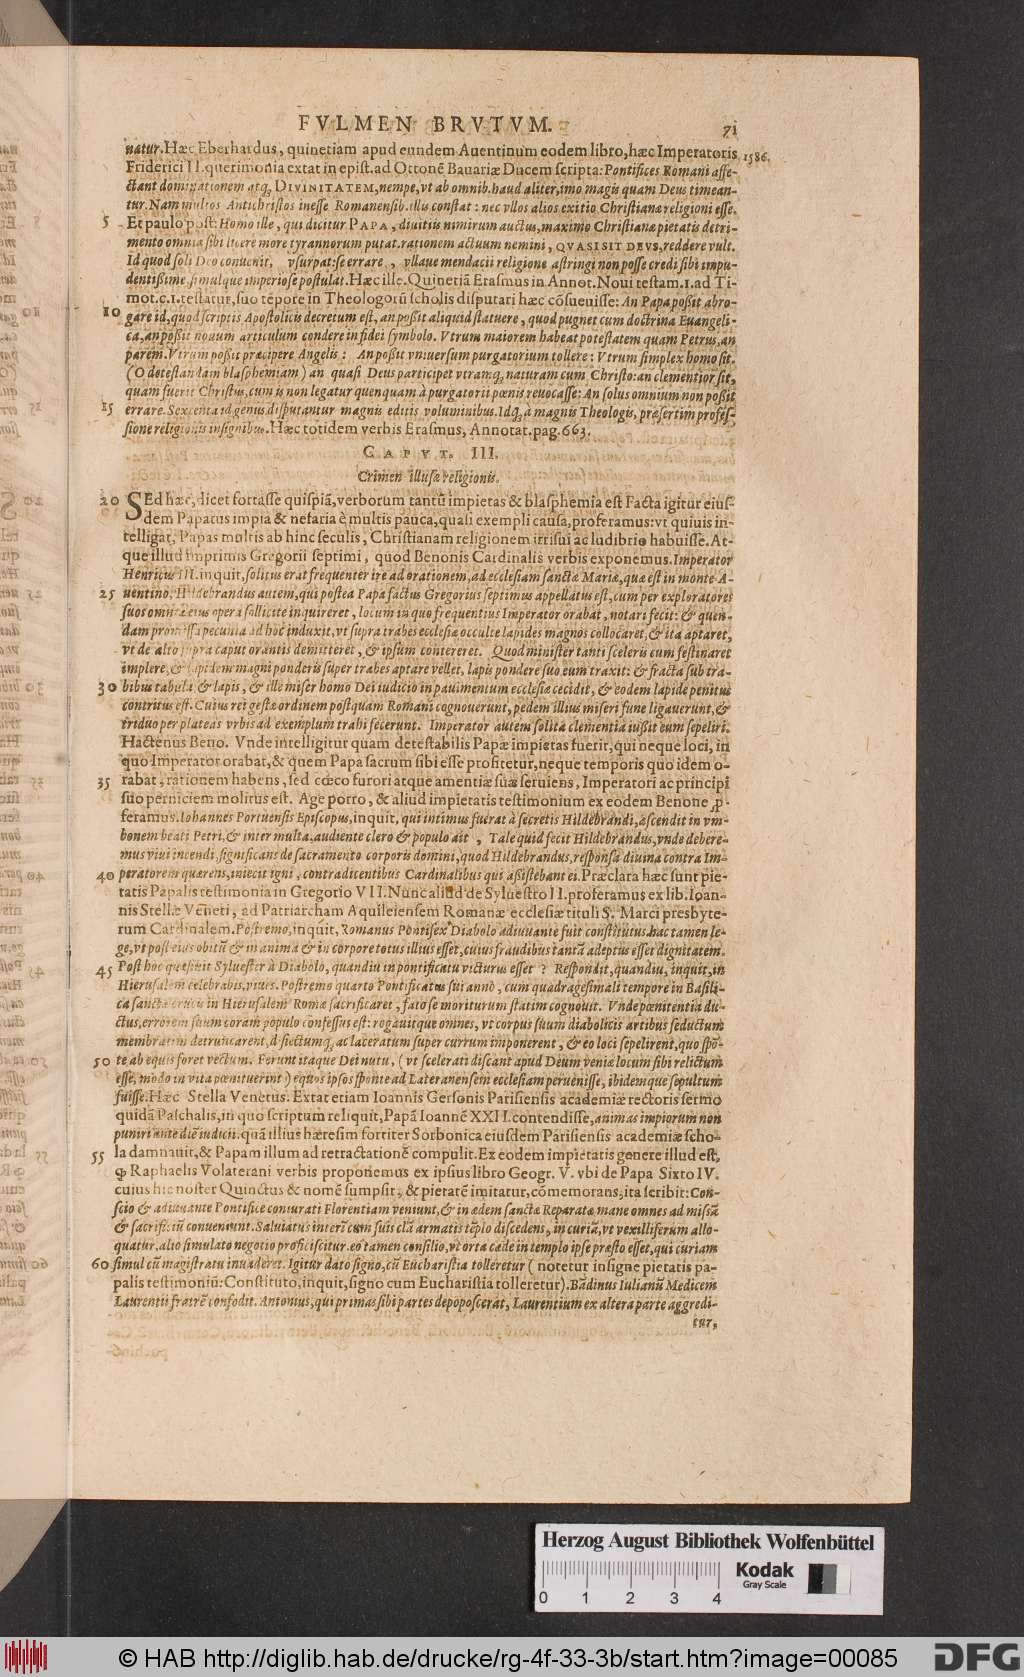 FVLMEN BRVTVM. 71
natur. Hæc Eberhardus, quinetiam apud eundem Auentinum eodem libro, hæc Imperatoris 1586.
Friderici II. querimonia extat in epist. ad Ottonē Bauariæ Ducem scripta: Pontifices Romani affe-
ctant dominationem atq, DIVINITATEM, nempe, vt ab omnib. haud aliter, imo magis quam Deus timean-
tur. Nam multos Antichristos inesse Romanensib. illis constat: nec vllos alios exitio Christianæ religioni esse.
5 Et paulo post: Homo ille, qui dicitur PAPA, diuitiis nimirum auctus, maximo Christianæ pietatis detri-
mento omnia sibi licere more tyrannorum putat. rationem actuum nemini, QVASI SIT DEVS, reddere vult.
Id quod soli Deo conuenit, vsurpat: se errare, vllaue mendacii religione astringi non posse credi sibi impu-
dentissime, simulque imperiose postulat. Hæc ille. Quinetiā Erasmus in Annot. Noui testam. 1. ad Ti-
mot. c. 1. testatur, suo tēpore in Theologorū scholis disputari hæc cōsueuisse: An Papa possit abro-
10 gare id, quod scriptis Apostolicis decretum est, an possit aliquid statuere, quod pugnet cum doctrina Euangeli-
ca, an possit nouum articulum condere in fidei symbolo. Vtrum maiorem habeat potestatem quam Petrus, an
parem. Vtrum possit præcipere Angelis: An possit vniuersum purgatorium tollere: Vtrum simplex homo sit.
(O detestandam blasphemiam) an quasi Deus participet vtramq, naturam cum Christo: an clementior sit,
quam fuerit Christus, cum is non legatur quenquam à purgatorii pœnis reuocasse: An solus omnium non possit
15 errare. Sexcenta id genus disputantur magnis editis voluminibus. Idq, à magnis Theologis, præsertim profes-
sione religionis insignibus. Hæc totidem verbis Erasmus, Annotat. pag. 663.
CAPVT. III.
Crimen illusæ religionis.
20 SEd hæc, dicet fortasse quispiā, verborum tantū impietas & blasphemia est Facta igitur eius-
dem Papatus impia & nefaria è multis pauca, quasi exempli causa, proferamus: vt quiuis in-
telligat, Papas multis ab hinc seculis, Christianam religionem irrisui ac ludibrio habuisse. At-
que illud imprimis Gregorii septimi, quod Benonis Cardinalis verbis exponemus. Imperator
Henricus III. inquit, solitus erat frequenter ire ad orationem, ad ecclesiam sanctæ Mariæ, quæ est in monte A-
25 uentino. Hildebrandus autem, qui postea Papa factus Gregorius septimus appellatus est, cum per exploratores
suos omnia eius opera sollicite inquireret, locum in quo frequentius Imperator orabat, notari fecit: & quen-
dam promissa pecunia ad hoc induxit, vt supra trabes ecclesiæ occulte lapides magnos collocaret, & ita aptaret,
vt de alto supra caput orantis demitteret, & ipsum contereret. Quod minister tanti sceleris cum festinaret
implere, & lapidem magni ponderis super trabes aptare vellet, lapis pondere suo eum traxit: & fracta sub tra-
30 bibus tabula & lapis, & ille miser homo Dei iudicio in pauimentum ecclesiæ cecidit, & eodem lapide penitus
contritus est. Cuius rei gestæ ordinem postquam Romani cognouerunt, pedem illius miseri fune ligauerunt, &
triduo per plateas vrbis ad exemplum trahi fecerunt. Imperator autem solita clementia iussit eum sepeliri.
Hactenus Beno. Vnde intelligitur quam detestabilis Papæ impietas fuerit, qui neque loci, in
quo Imperator orabat, & quem Papa sacrum sibi esse profitetur, neque temporis quo idem o-
35 rabat, rationem habens, sed cœco furori atque amentiæ suæ seruiens, Imperatori ac principi
suo perniciem molitus est. Age porro, & aliud impietatis testimonium ex eodem Benone p-
feramus. Iohannes Portuensis Episcopus, inquit, qui intimus fuerat à secretis Hildebrandi, ascendit in vm-
bonem beati Petri, & inter multa, audiente clero & populo ait, Tale quid fecit Hildebrandus, vnde debere-
mus viui incendi, significans de sacramento corporis domini, quod Hildebrandus, responsa diuina contra Im-
40 peratorem quærens, iniecit igni, contradicentibus Cardinalibus qui assistebant ei. Præclara hæc sunt pie-
tatis Papalis testimonia in Gregorio VII. Nunc aliud de Syluestro II. proferamus ex lib. Ioan-
nis Stellæ Veneti, ad Patriarcham Aquileiensem Romanæ ecclesiæ tituli S. Marci presbyte-
rum Cardinalem. Postremo, inquit, Romanus Pontifex Diabolo adiuuante fuit constitutus. hac tamen le-
ge, vt post eius obitū & in anima & in corpore totus illius esset, cuius fraudibus tantā adeptus esset dignitatem.
45 Post hoc quæsiuit Syluester à Diabolo, quandiu in pontificatu victurus esset? Respondit, quandiu, inquit, in
Hierusalem celebrabis, viues. Postremo quarto Pontificatus sui anno, cum quadragesimali tempore in Basili-
ca sanctæ crucis in Hierusalem Romæ sacrificaret, fato se moriturum statim cognouit. Vnde pœnitentia du-
ctus, errorem suum coram populo confessus est: rogauitque omnes, vt corpus suum diabolicis artibus seductum
membratim detruncarent, dissectumq, ac laceratum super currum imponerent, & eo loci sepelirent, quo spō-
50 te ab equis foret vectum. Ferunt itaque Dei nutu, (vt scelerati discant apud Deum veniæ locum sibi relictum
esse, modo in vita pœnituerint) equos ipsos sponte ad Lateranensem ecclesiam peruenisse, ibidemque sepultum
fuisse. Hæc Stella Venetus. Extat etiam Ioannis Gersonis Parisiensis academiæ rectoris sermo
quidā Paschalis, in quo scriptum reliquit, Papā Ioannē XXII. contendisse, animas impiorum non
puniri ante diē iudicii. quā illius hæresim fortiter Sorbonica eiusdem Parisiensis academiæ scho-
55 la damnauit, & Papam illum ad retractationē compulit. Ex eodem impietatis genere illud est,
qp Raphaelis Volaterani verbis proponemus ex ipsius libro Geogr. V. vbi de Papa Sixto IV.
cuius hic noster Quinctus & nomē sumpsit, & pietatē imitatur, cōmemorans, ita scribit: Con-
scio & adiuuante Pontifice coniurati Florentiam veniunt, & in ædem sanctæ Reparatæ mane omnes ad missā
& sacrificiū conueniunt. Saluiatus interī cum suis clā armatis tēplo discedens, in curiā, vt vexilliferum allo-
quatur, alio simulato negotio proficiscitur. eo tamen consilio, vt orta cæde in templo ipse præsto esset, qui curiam
60 simul cū magistratu inuaderet. Igitur dato signo, cū Eucharistia tolleretur (notetur insigne pietatis pa-
palis testimoniū: Constituto, inquit, signo cum Eucharistia tolleretur). Bādinus Iulianū Medicem
Laurentii fratrē confodit. Antonius, qui primas sibi partes depoposcerat, Laurentium ex altera parte aggredi-
tur,
Herzog August Bibliothek Wolfenbüttel
0 1 2 3 4
Kodak
Gray Scale
© HAB http://diglib.hab.de/drucke/rg-4f-33-3b/start.htm?image=00085
DFG